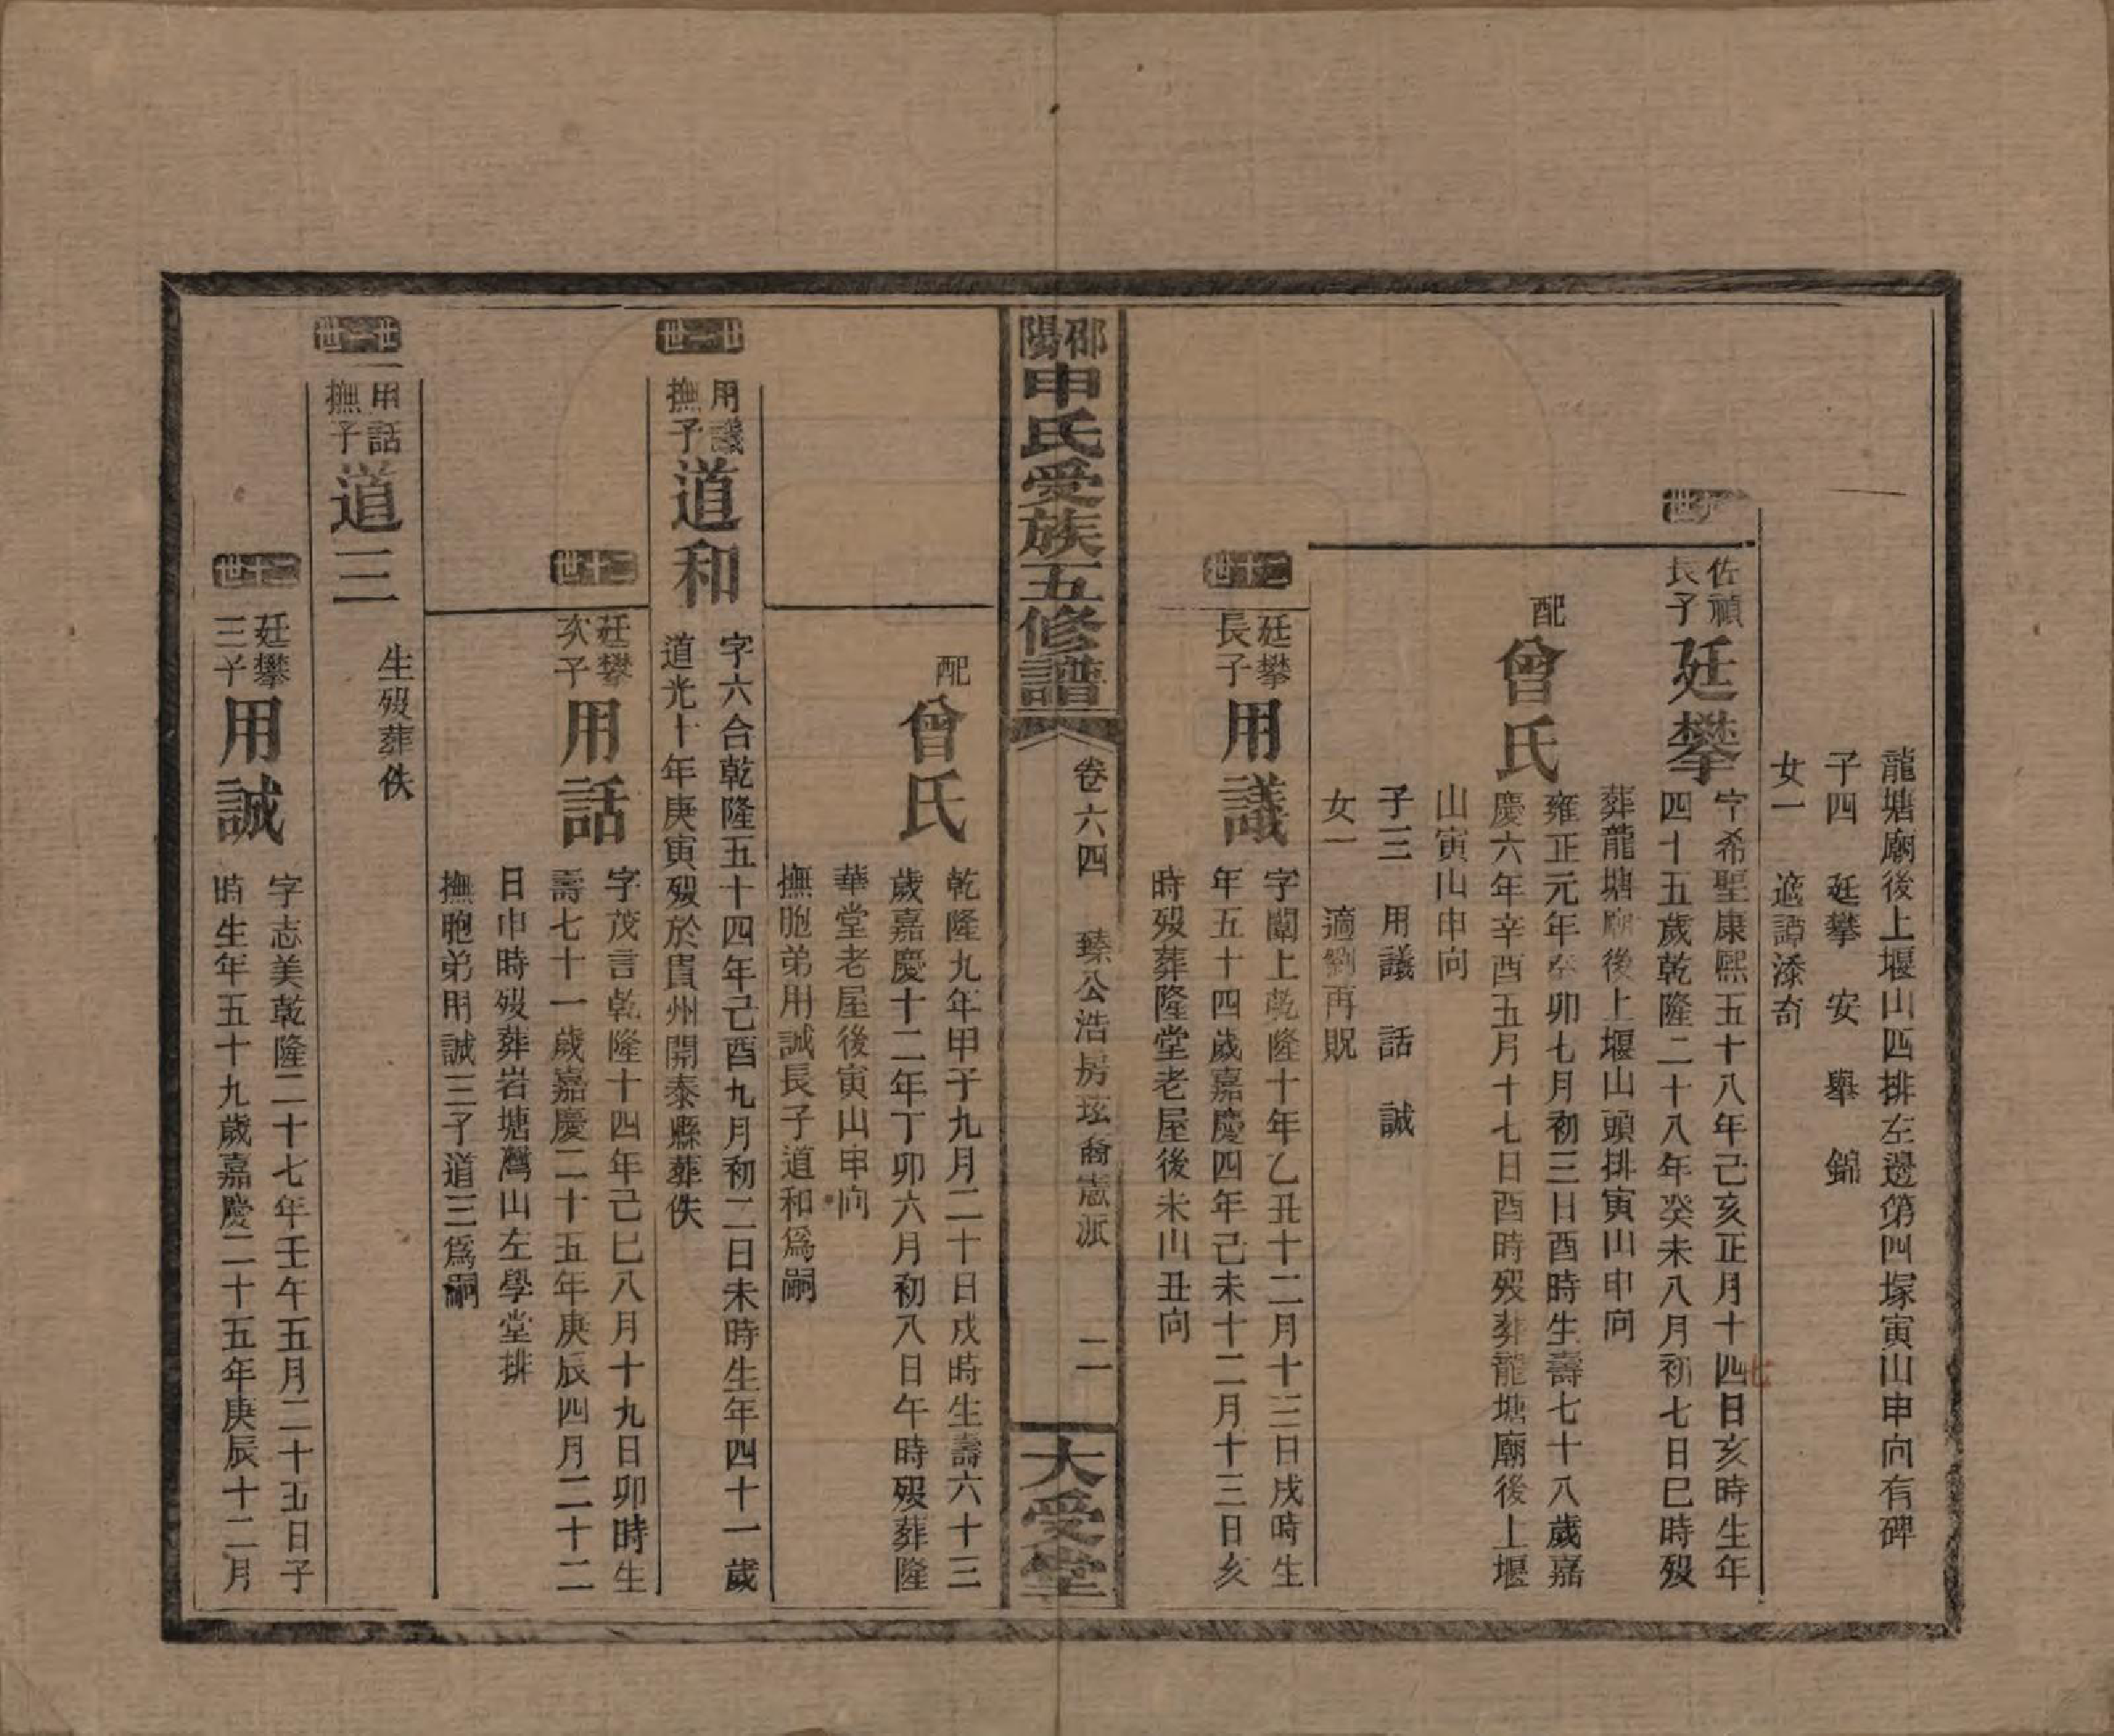 龍塘廟後上堰山四排左邊第四塚寅山申向有碑
子四 廷攀 安 舉 錦
女一 適譚添奇
十九世
佐禎長子 廷攀 字希聖康熙五十八年己亥正月十四日亥時生年
四十五歲乾隆二十八年癸未八月初七日巳時歿
葬龍塘廟後上堰山頭排寅山申向
七
配 曾氏 雍正元年癸卯七月初三日酉時生壽七十八歲嘉
慶六年辛酉五月十七日酉時歿葬龍塘廟後上堰
山寅山申向
子三 用議 話 誠
女一 適劉再貺
二十世
廷攀長子 用議 字闡上乾隆十年乙丑十二月十三日戌時生
年五十四歲嘉慶四年己未十二月十三日亥
時歿葬隆堂老屋後未山丑向
邵陽申氏受族五修譜
卷六四 臻公浩房玹裔憲派 二
大受堂
配 曾氏 乾隆九年甲子九月二十日戌時生壽六十三
歲嘉慶十二年丁卯六月初八日午時歿葬隆
華堂老屋後寅山申向
撫胞弟用誠長子道和爲嗣
廿一世
用議撫子 道和 字六合乾隆五十四年己酉九月初二日未時生年四十一歲
道光十年庚寅歿於貴州開泰縣葬佚
二十世
廷攀次子 用話 字茂言乾隆十四年己巳八月十九日卯時生
壽七十一歲嘉慶二十五年庚辰四月二十二
日申時歿葬岩塘灣山左學堂排
撫胞弟用誠三子道三爲嗣
廿一世
用話撫子 道三 生歿葬佚
二十世
廷攀三子 用誠 字志美乾隆二十七年壬午五月二十五日子
時生年五十九歲嘉慶二十五年庚辰十二月